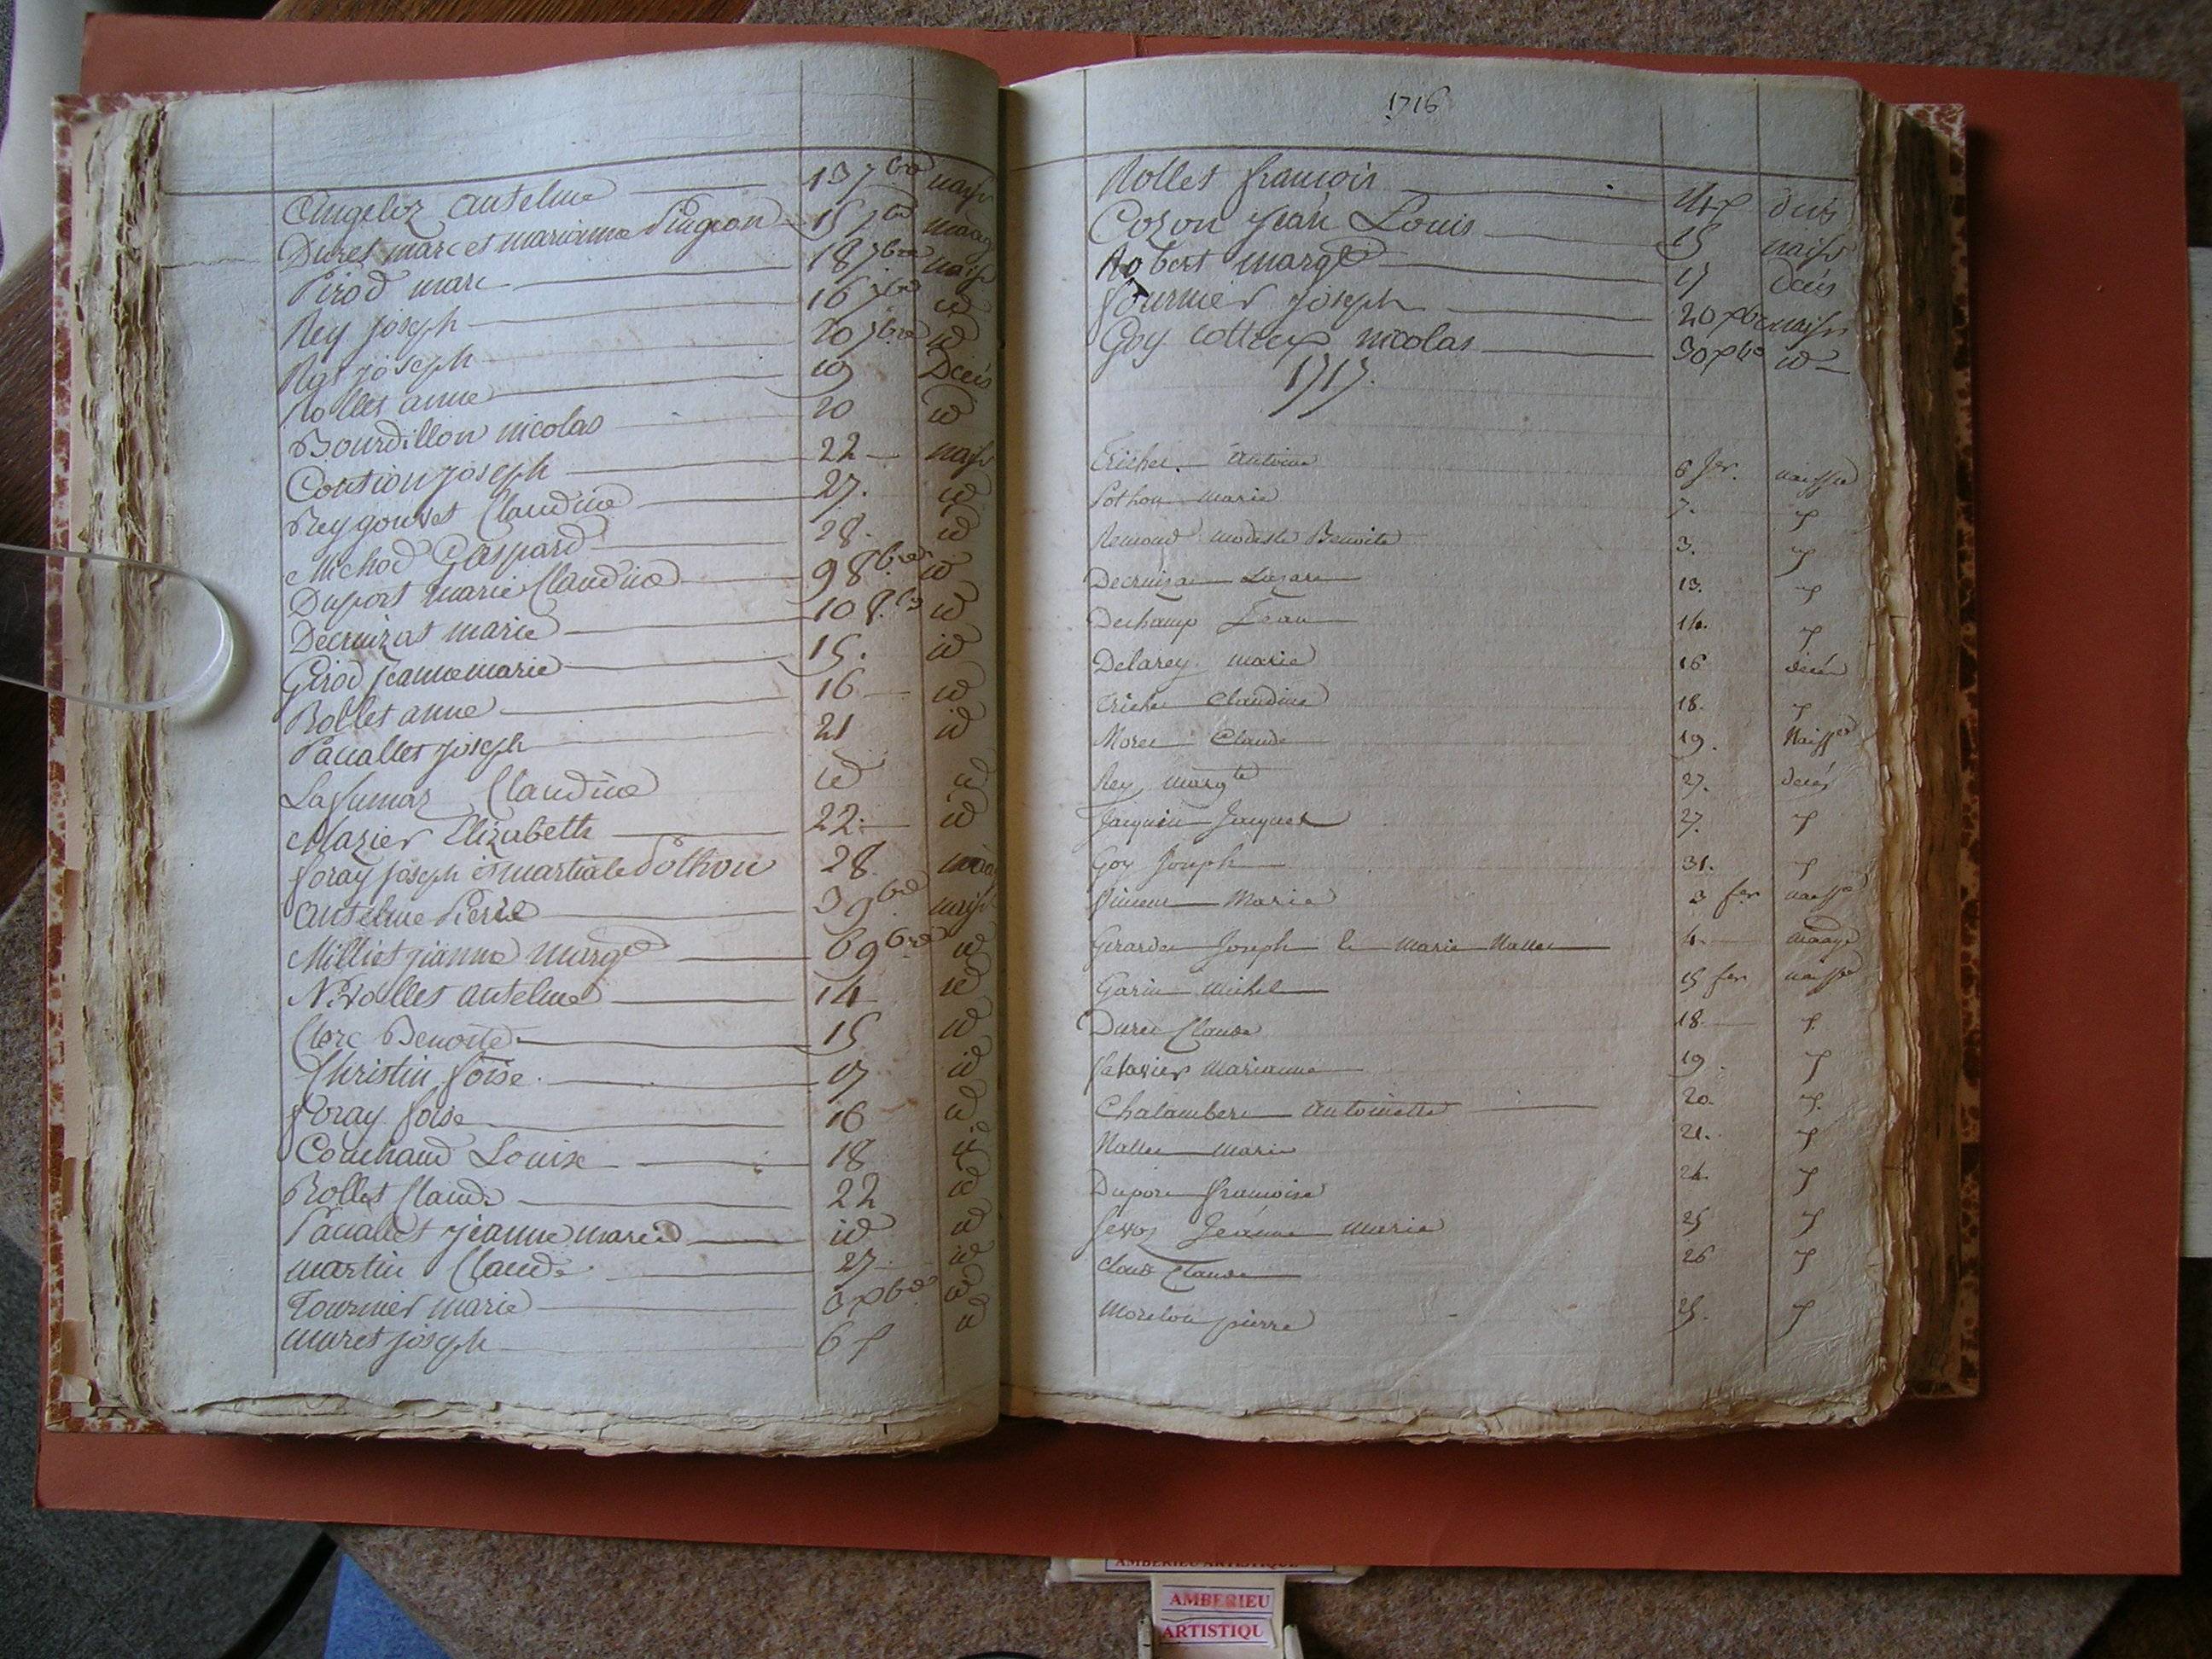 Angeloz anselme 13 7bre naisse
Duret marc et marianne Pingeon 15 7bre maage
Pirod marc 18 7bre naisse
Rey joseph 16 7bre id
Rat joseph 20 7bre id
Rollet anne 19 Deces
Bourdillon nicolas 20 id
Contion joseph 22 naisse
Reygonvet Claudine 27. id
Michod Gaspard 28. id
Duport marie Claudine 9 8bre id
Decruizat marie 10 8bre id
Girod jeanne marie 15. id
Rollet anne 16 id
Pauallet joseph 21 id
Lafumaz Claudine id id
Mazier Elizabeth 22 id
foray joseph et martiale Pothon 28 maage
anselme Pierre 3 9bre naisse
Milliet jeanne margte 6 9bre id
Nivollet anselme 14 id
Clerc Benoite 15 id
Christin foise. 17 id
foray foise 16 id
Couchaud Louise 18 id
Rollet Claude 22 id
Pauallet jeanne marie id id
martin Claude 27 id
Tournier marie 3 xbre id
muret joseph 6 id
1716
Rollet francois deces
Cozon jean Louis 15 naisse
Robert margte 17 deces
fournier joseph 20 xbre naisse
Goy cottex nicolas 30 xbre id
1717.
Trichet. antoine 6 jer. naisse
Pothon marie 7.
Remond modeste Benoite 3.
Decruiza Lazare 13.
Dechamp Jean 14.
Delarey marie 16 deces
Trichet Claudine 18.
Moret Claude 19. Naisse
Rey margte 27. deces
Jacquin Jacques 27.
Goy Joseph 31.
Marie 3 fer naisse
Girardet Joseph & Marie Nallet 4. maage
Garin Michel 15 fer naisse
Duret Claude 18
marianne 19.
Chalambert antoinette 20.
Nallet marie 21.
Duport francoise 24.
Jeanne marie 25
Claude 26
Morelon pierre 25.
AMBERIEU ARTISTIQUE
AMBERIEU
ARTISTIQU